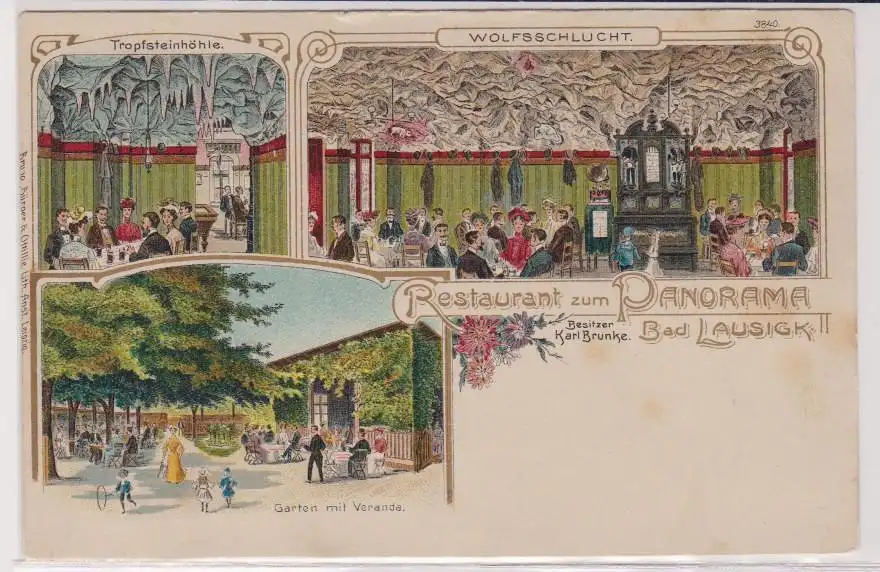 3840.
Tropfsteinhöhle.
WOLFSSCHLUCHT.
Restaurant zum PANORAMA
Besitzer
Karl Brunke.
Bad LAUSIGK
Garten mit Veranda.
Benno Bürger & Ottillie Lith. Anst. Leipzig.